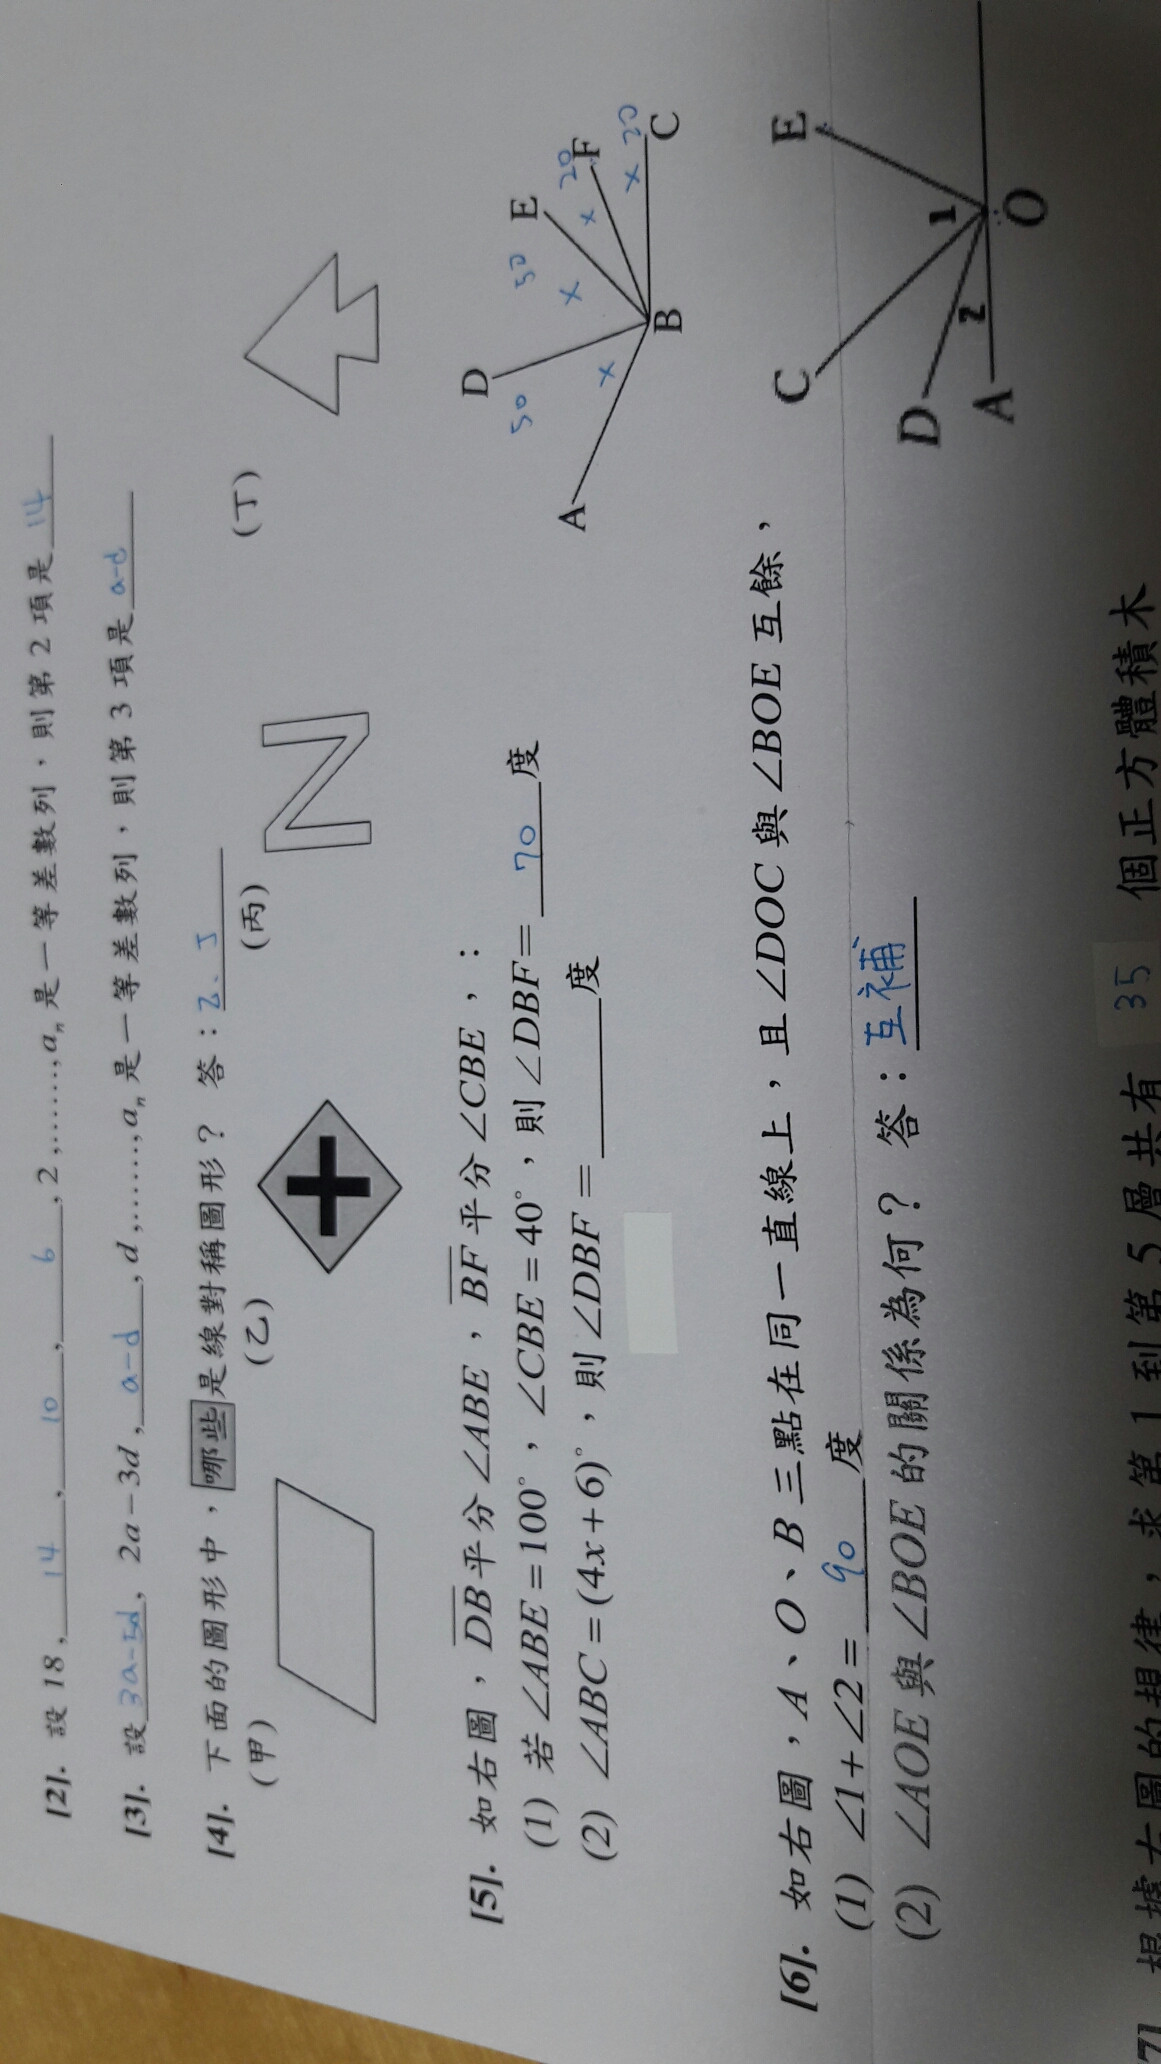 [2]. 設 18, 14 , 10 , 6 , 2 ,……, aₙ 是一等差數列，則第 2 項是 14
[3]. 設 3a-5d , 2a－3d , a-d , d ,……, aₙ 是一等差數列，則第 3 項是 a-d
[4]. 下面的圖形中，哪些是線對稱圖形？ 答：乙、丁
(甲) (乙) (丙) (丁)
N
[5]. 如右圖，DB平分∠ABE，BF平分∠CBE，：
(1) 若∠ABE＝100°，∠CBE＝40°，則∠DBF＝ 70 度
(2) ∠ABC＝(4x＋6)°，則∠DBF＝ 度
A
D
E
F
C
B
50
50
20
20
x
x
x
x
[6]. 如右圖，A、O、B三點在同一直線上，且∠DOC與∠BOE互餘，
(1) ∠1＋∠2＝ 90 度
(2) ∠AOE與∠BOE的關係為何？ 答：互補
C
E
D
A
O
1
2
根據右圖的規律，求第1到第5層共有 35 個正方體積木